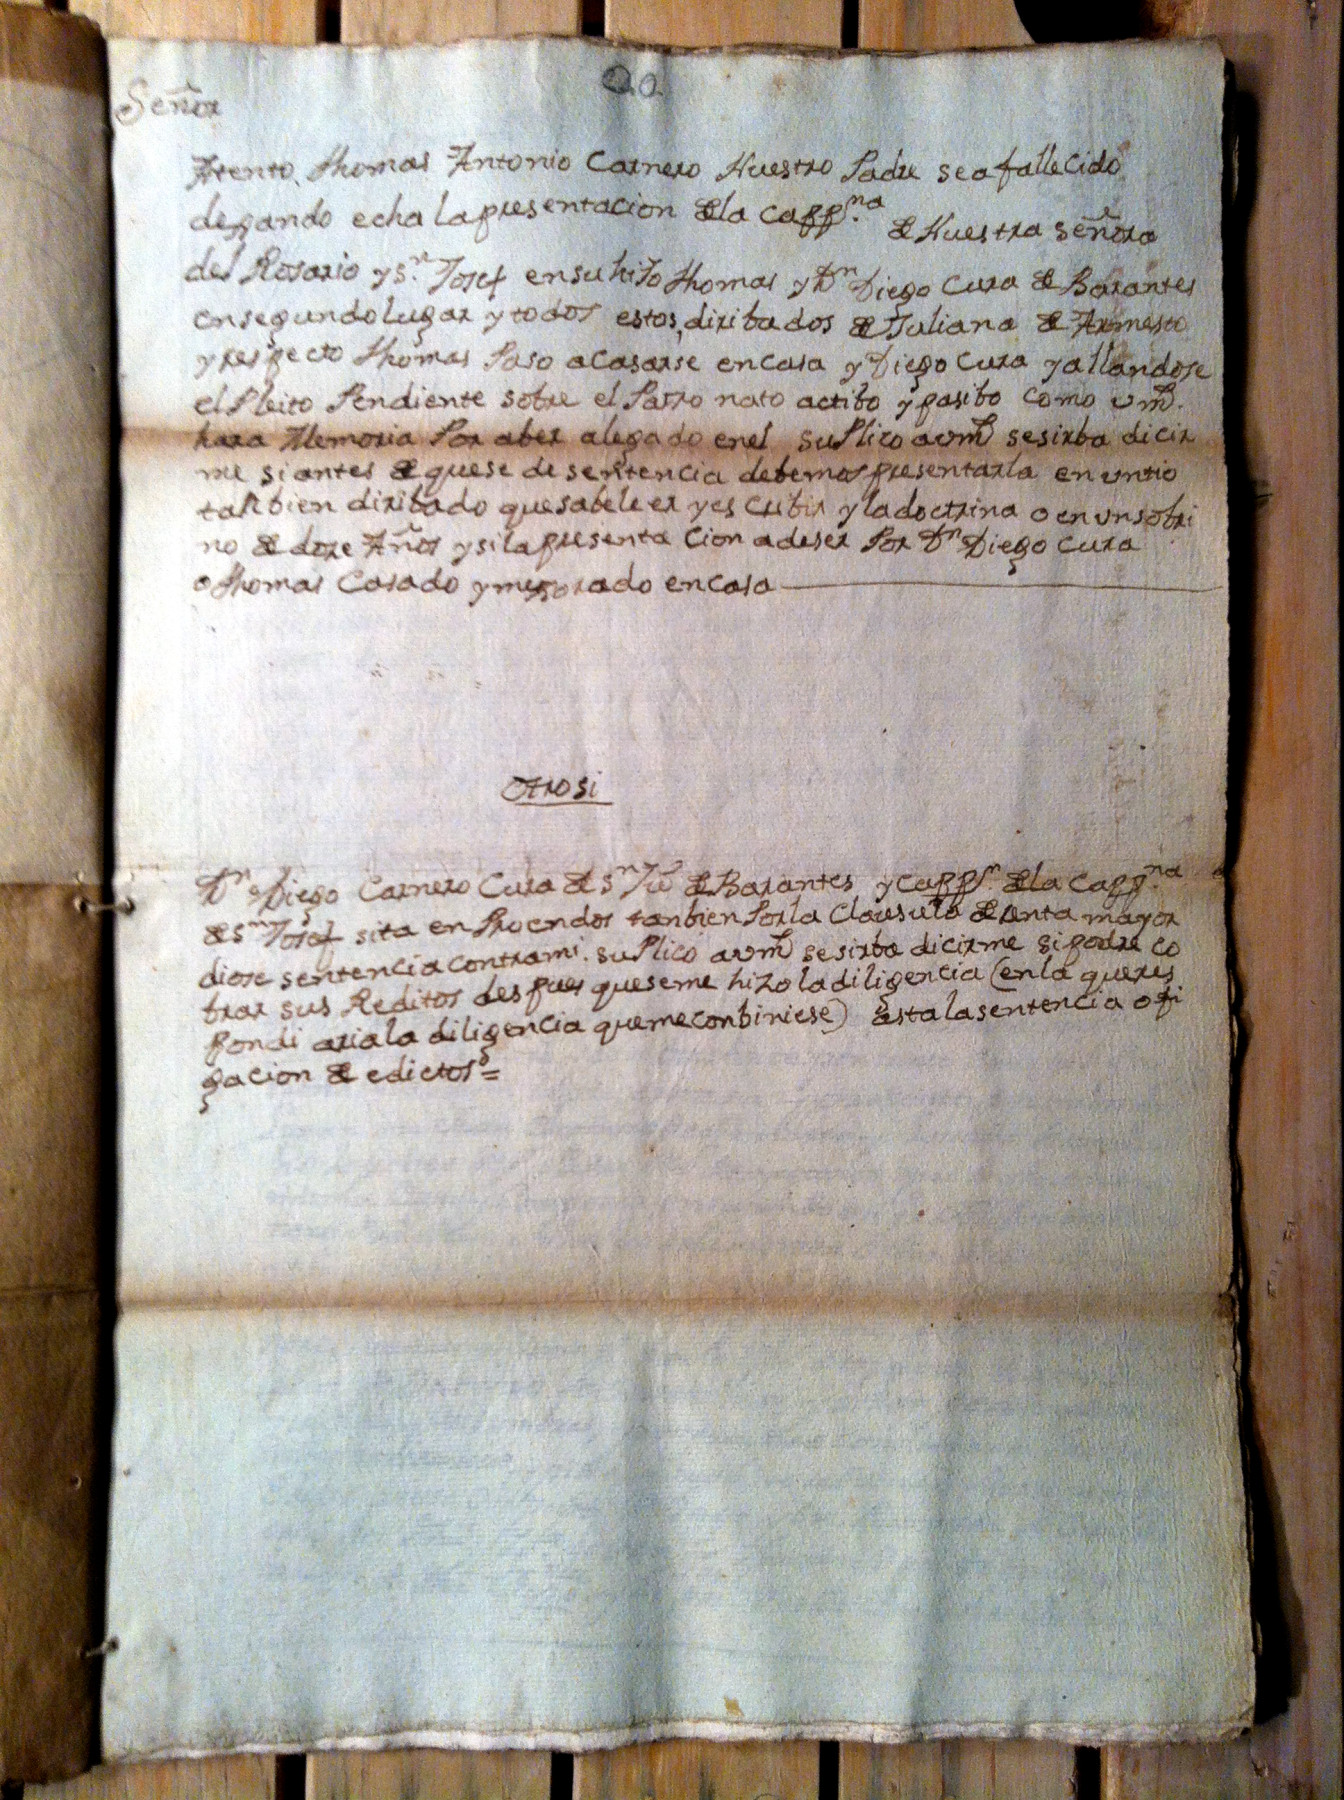 Señor
Atento, Thomas Antonio Carnero Nuestro Padre sea fallecido
degando echa la presentacion de la capp.na de Nuestra Señora
del Rosario y S.n Josef en su hiJo Thomas y Dn Diego Cura de Barantes
en segundo lugar y todos estos, diribados de Juliana de Armesto
y respecto Thomas Paso a casarse en casa y Diego Cura y allandose
el Pleito Pendiente sobre el Patro nato actibo y pasibo como vmd.
hara Memoria Por aber alegado en el suPlico a vmd se sirba dicir
me si antes de que se de sentencia debemos presentarla en un tio
tanbien diribado que sabe leer y es cribir y la doctrina o en un sobri
no de doze Años y si la presenta cion a de ser Por Dn Diego Cura
o Thomas Casado y megorado en casa
Otro si
Dn Diego Carnero Cura de Sn Ju de Barantes y capp.n de la capp.na
de Sn Josef sita en Proendos tanbien Por la Clausula de renta mayor
diose sentencia contra mi. suPlico a vmd se sirba dicirme si podre co
brar sus Reditos des pues que se me hizo la diligencia (en la que res
pondi aria la diligencia que me conbiniese) asta la sentencia o fi
gacion de edictos =